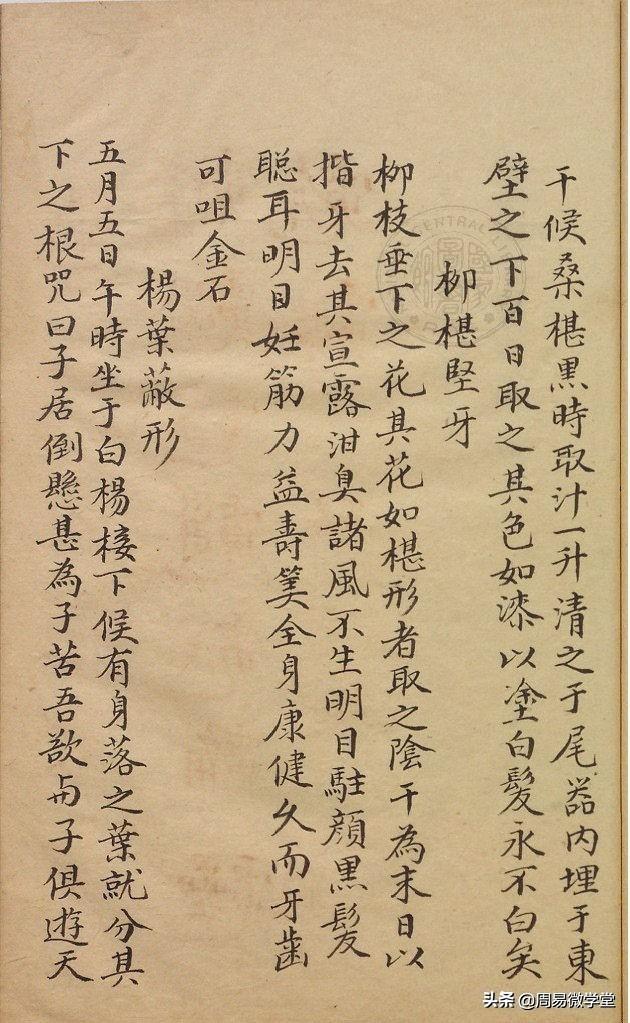 干候桑椹黒時取汁一升清之于尾器内埋于東
壁之下百日取之其色如漆以塗白髪永不白矣
柳椹堅牙
柳枝垂下之花其花如椹形者取之陰干為末日以
揩牙去其宣露泔臭諸風不生明目駐顔黒髪
聪耳明目妊筋力益壽筭全身康健久而牙歯
可咀金石
楊葉蔽形
五月五日午時坐于白楊楼下候有身落之葉就分其
下之根咒曰子居倒懸甚為子苦吾欲与子俱遊天
CENTRAL
头条 @周易微学堂